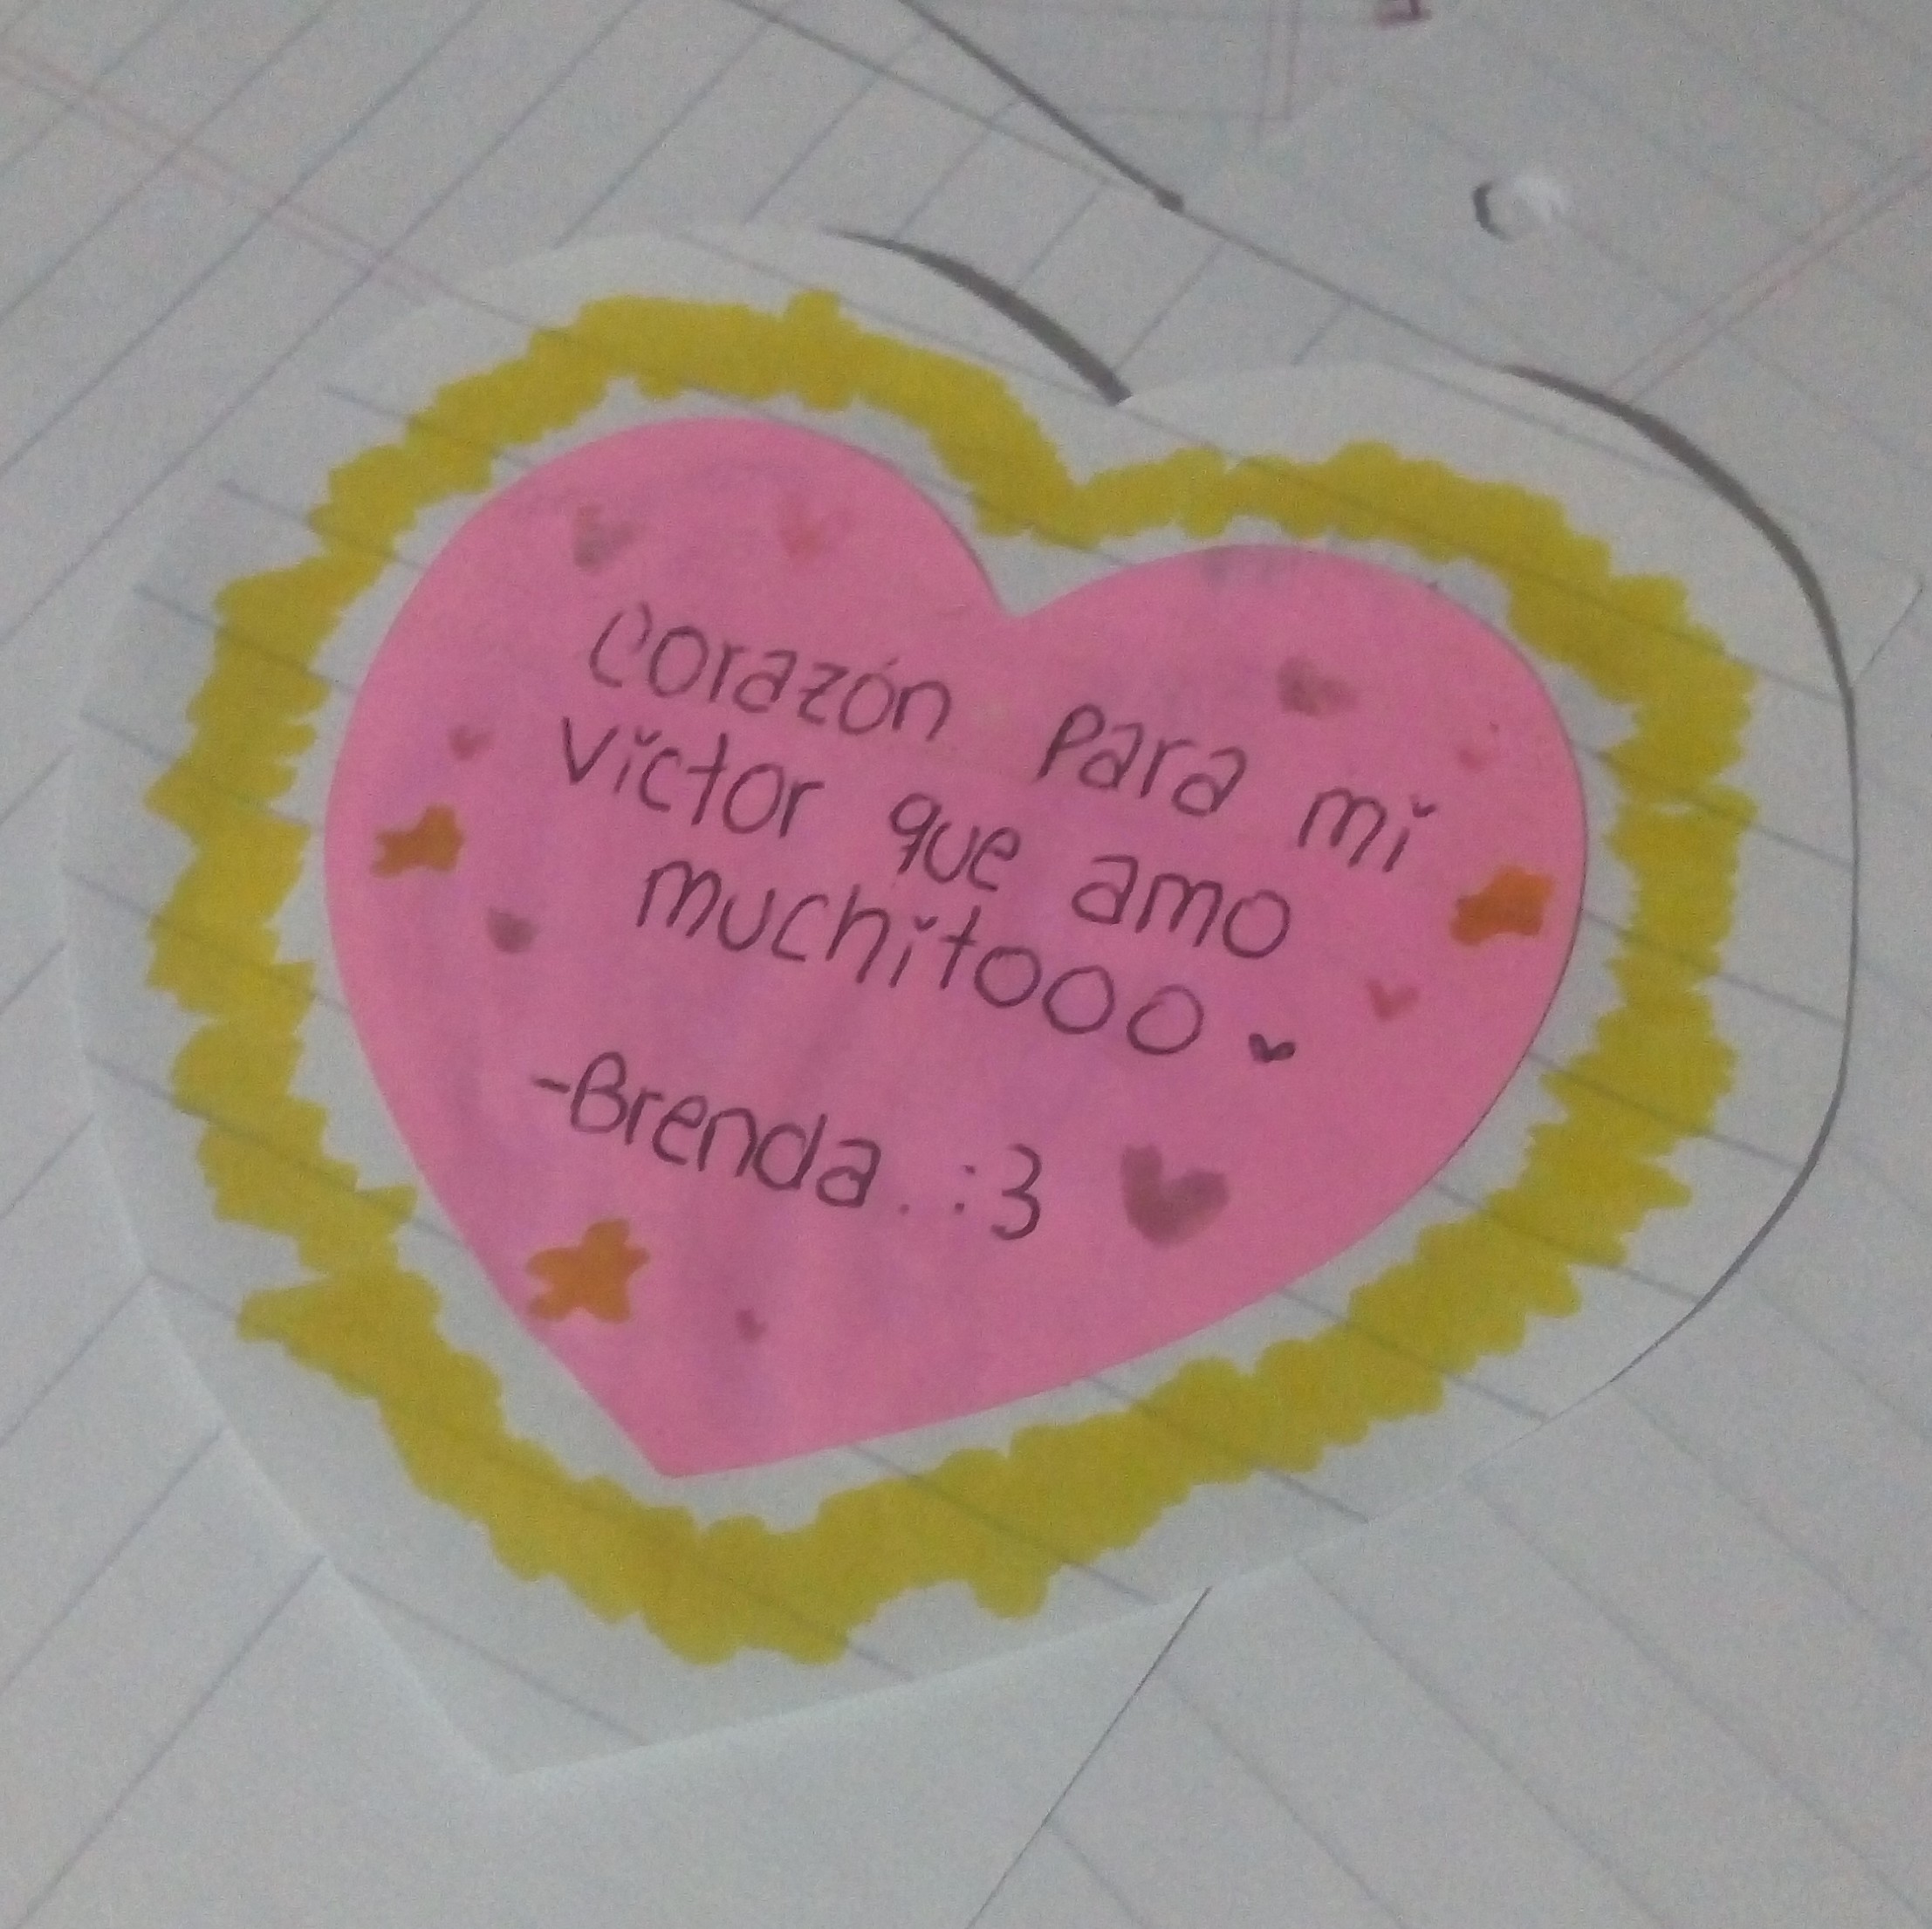 corazón para mi
victor que amo
muchitooo ♥
-Brenda. :3